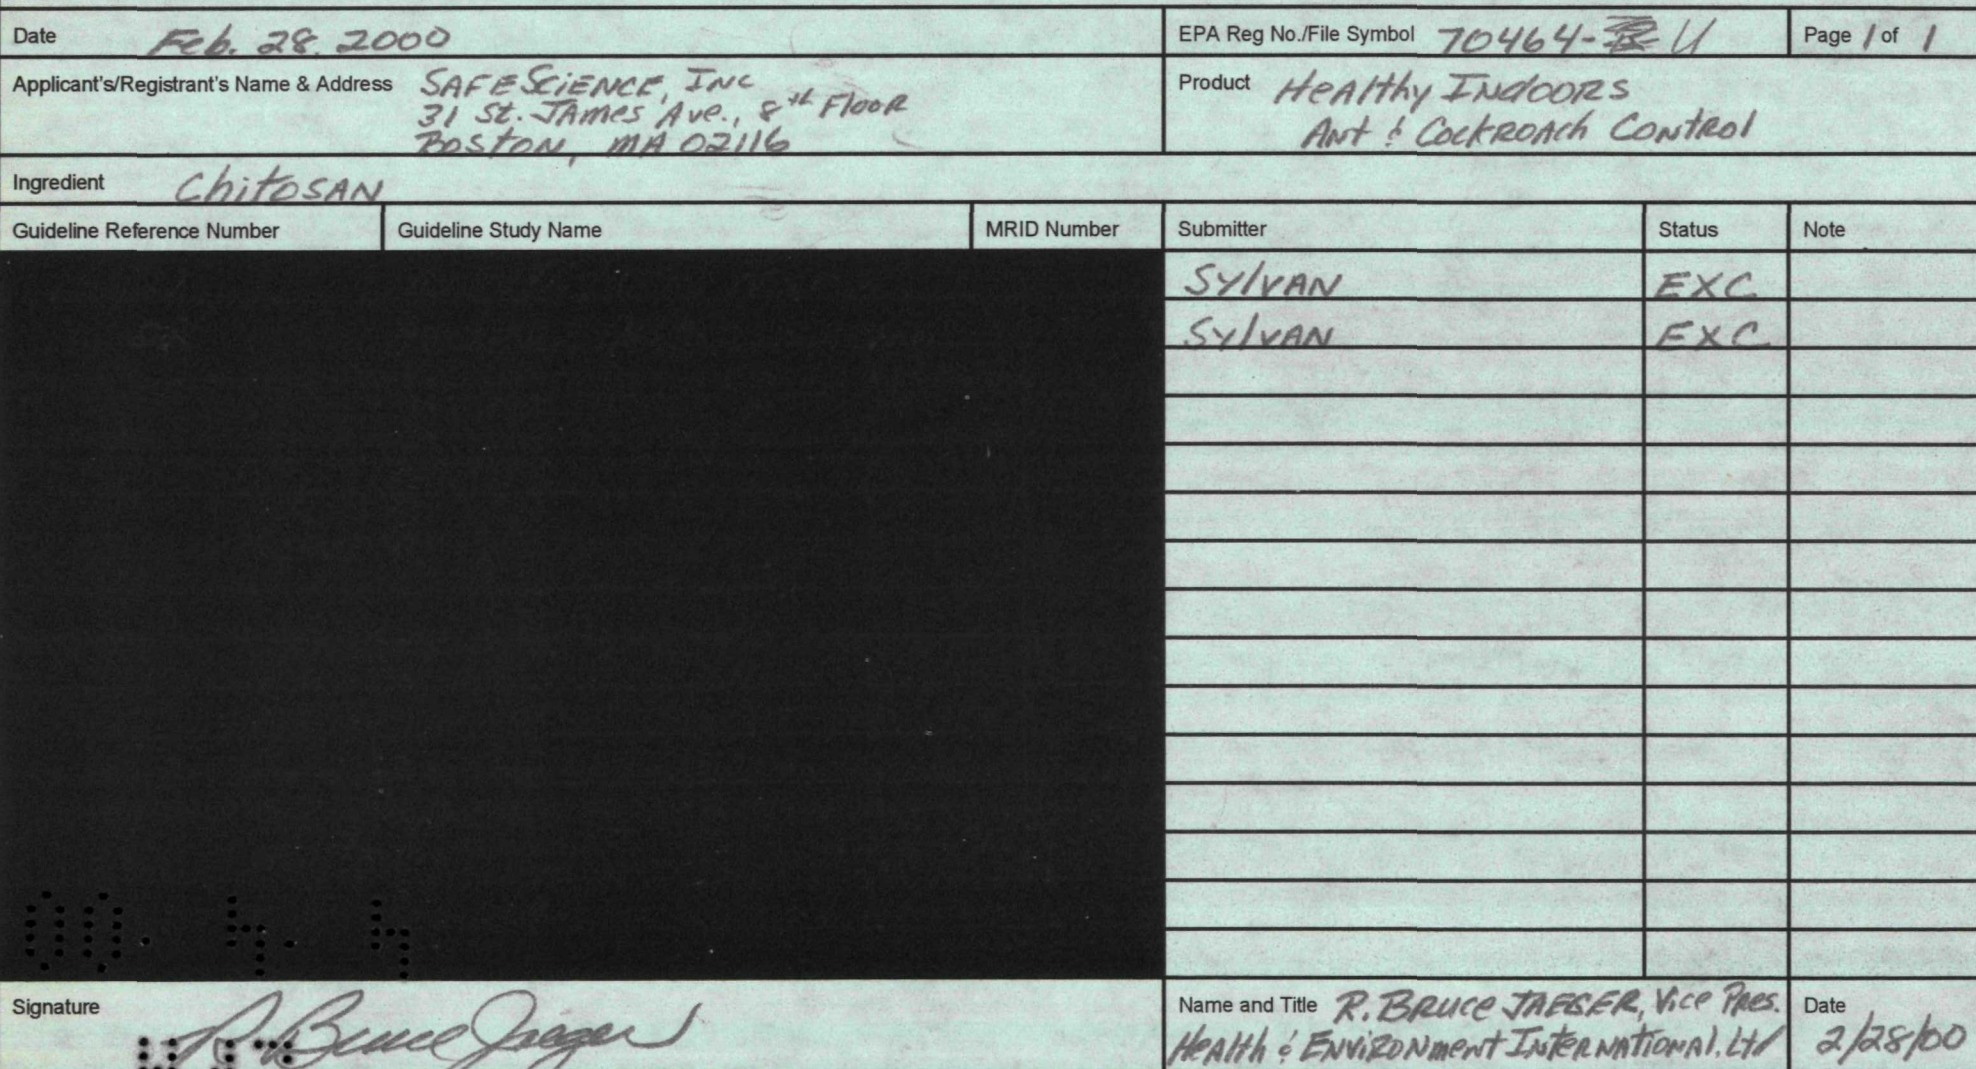 Date Feb. 28, 2000 EPA Reg No./File Symbol 70464- U Page 1 of 1
Applicant's/Registrant's Name & Address SAFESCIENCE, INC
31 St. James Ave., 8th Floor
Boston, MA 02116
Product Healthy Indoors
Ant & Cockroach Control
Ingredient Chitosan
Guideline Reference Number Guideline Study Name MRID Number Submitter Status Note
Sylvan EXC
Sylvan EXC
Signature R. Bruce Jaeger
Name and Title R. Bruce JAEGER, Vice Pres.
Health & Environment International. Ltd
Date
2/28/00